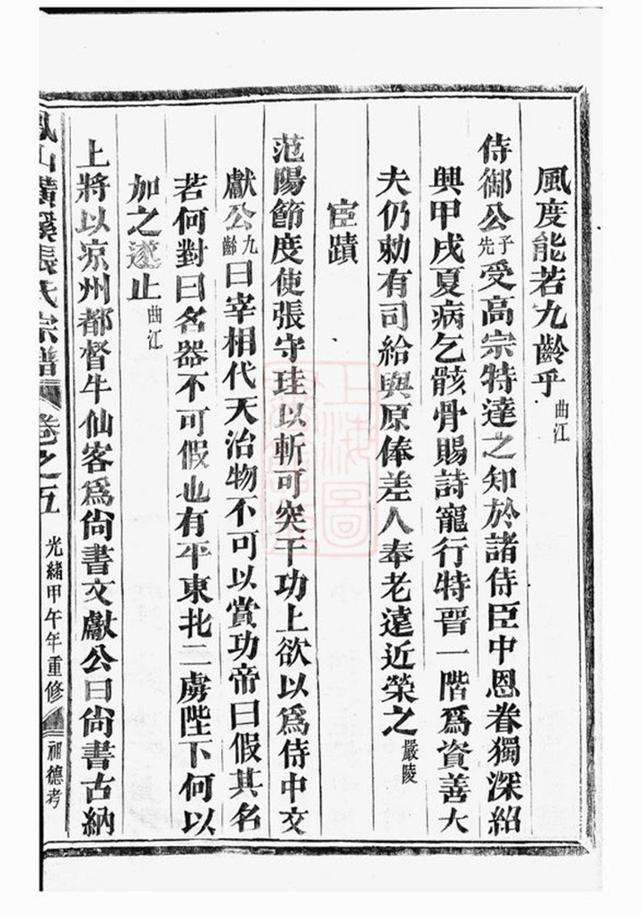 風度能若九齡乎曲江
侍御公子先受高宗特達之知於諸侍臣中恩眷獨深紹
興甲戌夏病乞骸骨賜詩寵行特晉一階為資善大
夫仍勅有司給與原俸差人奉老遠近榮之嚴陵
宦蹟
范陽節度使張守珪以斬可突干功上欲以為侍中文
獻公九齡曰宰相代天治物不可以賞功帝曰假其名
若何對曰名器不可假也有平東北二虜陛下何以
加之遂止曲江
上將以凉州都督牛仙客爲尚書文獻公曰尚書古納
鳳山張氏宗譜 卷之五 光緒甲午年重修 祖德考
上海圖